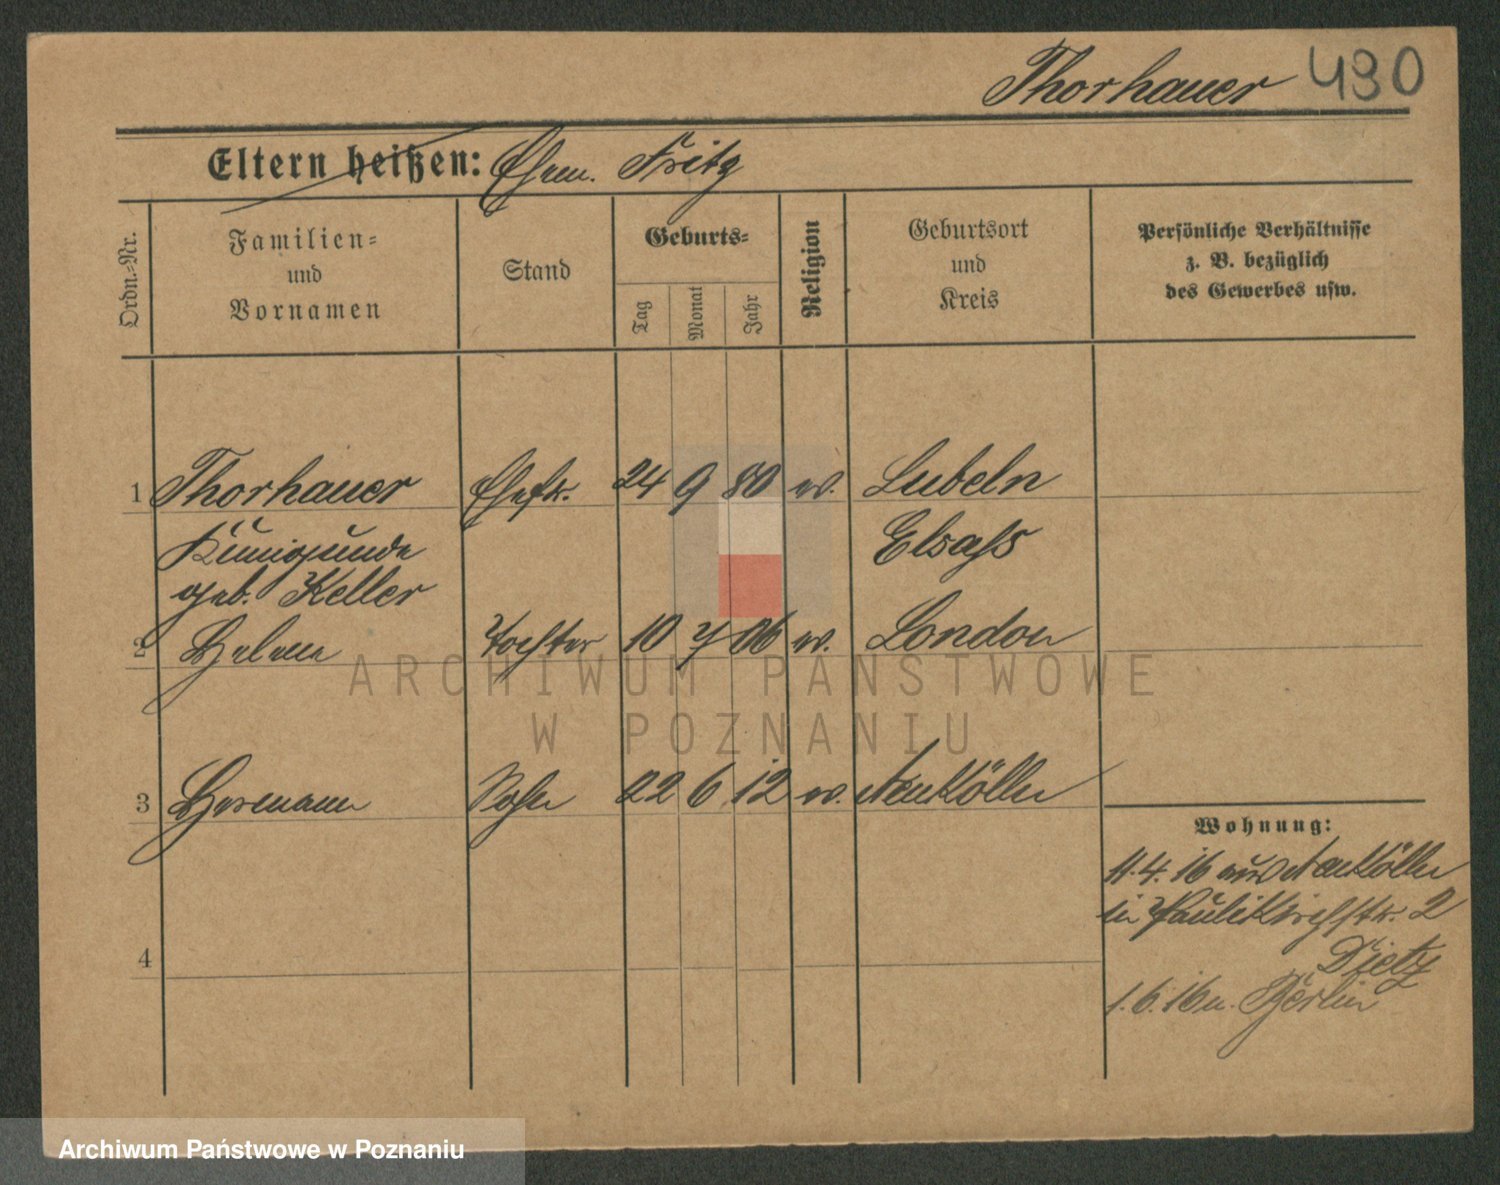 Thorhauer 490
Eltern heißen: Ehem. Fritz
Ordn.-Nr.
Familien-
und
Vornamen
Stand
Geburts-
Tag
Monat
Jahr
Religion
Geburtsort
und
Kreis
Persönliche Verhältnisse
z. B. bezüglich
des Gewerbes usw.
1 Thorhauer Ehefr. 24 9 80 ev. Lubeln
Künigunde Elsaß
geb. Keller
2 Helene Tochter 10 7 06 ev. London
ARCHIWUM PAŃSTWOWE
W POZNANIU
3 Hermann Sohn 22 6 12 ev. Neukölln
Wohnung:
11.4.16 aus Neukölln
in Paulikirchstr. 2
Dietz
4
1.6.16 n. Berlin
Archiwum Państwowe w Poznaniu